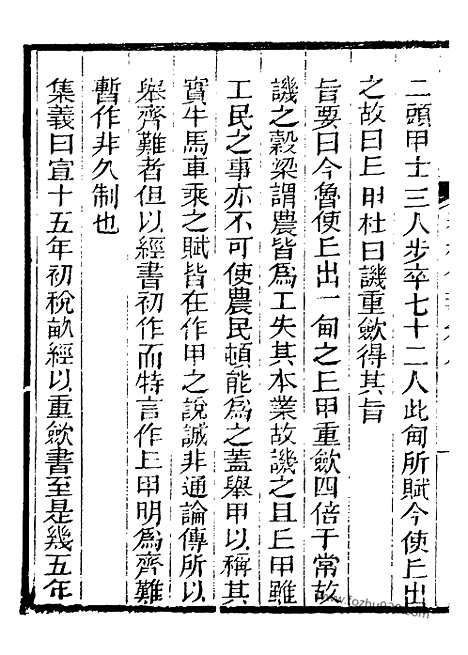 二頭甲士三人步卒七十二人此甸所賦今使丘出
之故曰丘甲杜曰譏重歛得其旨
旨要曰今魯使丘出一甸之丘甲重歛四倍于常故
譏之穀梁謂農皆為工失其本業故譏之且丘甲雖
工民之事亦不可使農民頓能為之蓋舉甲以稱其
實牛馬車乘之賦皆在作甲之說誠非通論傳所以
舉齊難者但以經書初作而特言作丘甲明為齊難
暫作非久制也
集義曰宣十五年初稅畝經以重歛書至是幾五年